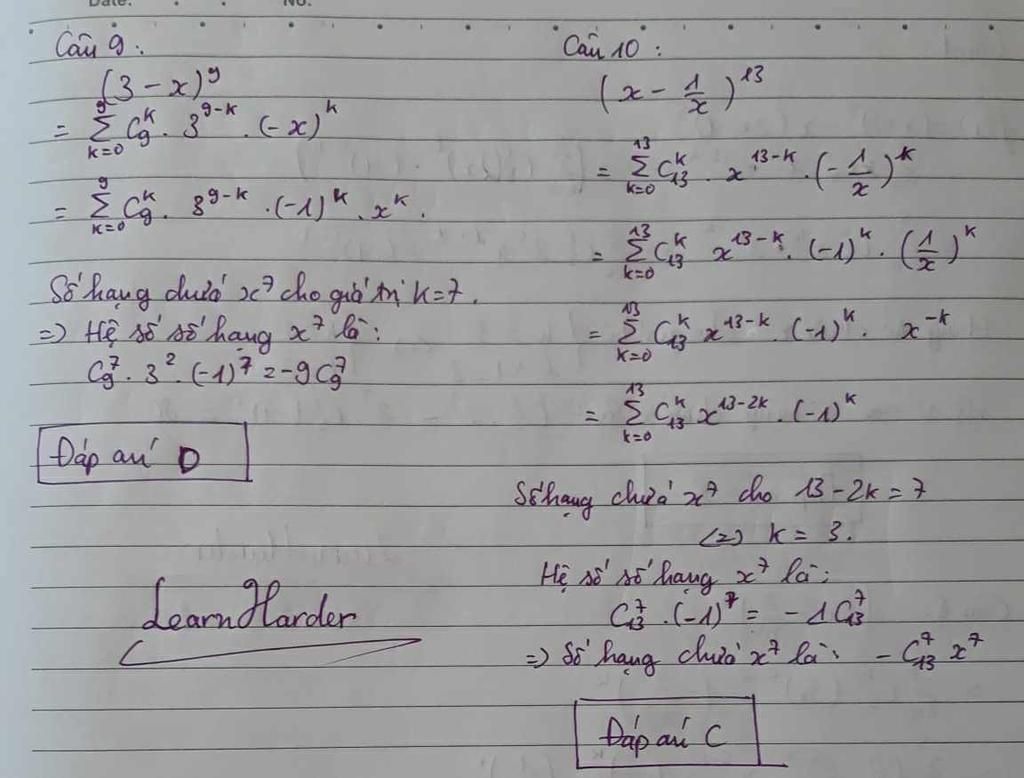 Date: No.
Câu 9:
(3 - x)^9
= \sum_{k=0}^{9} C_9^k . 3^{9-k} . (-x)^k
= \sum_{k=0}^{9} C_9^k . 3^{9-k} . (-1)^k . x^k.
Số hạng chứa x^7 cho giá trị k=7.
=> Hệ số số hạng x^7 là:
C_9^7 . 3^2 . (-1)^7 = -9C_9^7
Đáp án D
LearnHarder
Câu 10:
(x - \frac{1}{x})^{13}
= \sum_{k=0}^{13} C_{13}^k . x^{13-k} . (-\frac{1}{x})^k
= \sum_{k=0}^{13} C_{13}^k x^{13-k} . (-1)^k . (\frac{1}{x})^k
= \sum_{k=0}^{13} C_{13}^k x^{13-k} . (-1)^k . x^{-k}
= \sum_{k=0}^{13} C_{13}^k x^{13-2k} . (-1)^k
Số hạng chứa x^7 cho 13 - 2k = 7
<=> k = 3.
Hệ số số hạng x^7 là:
C_{13}^7 . (-1)^7 = -1C_{13}^7
=> Số hạng chứa x^7 là: -C_{13}^7 x^7
Đáp án C